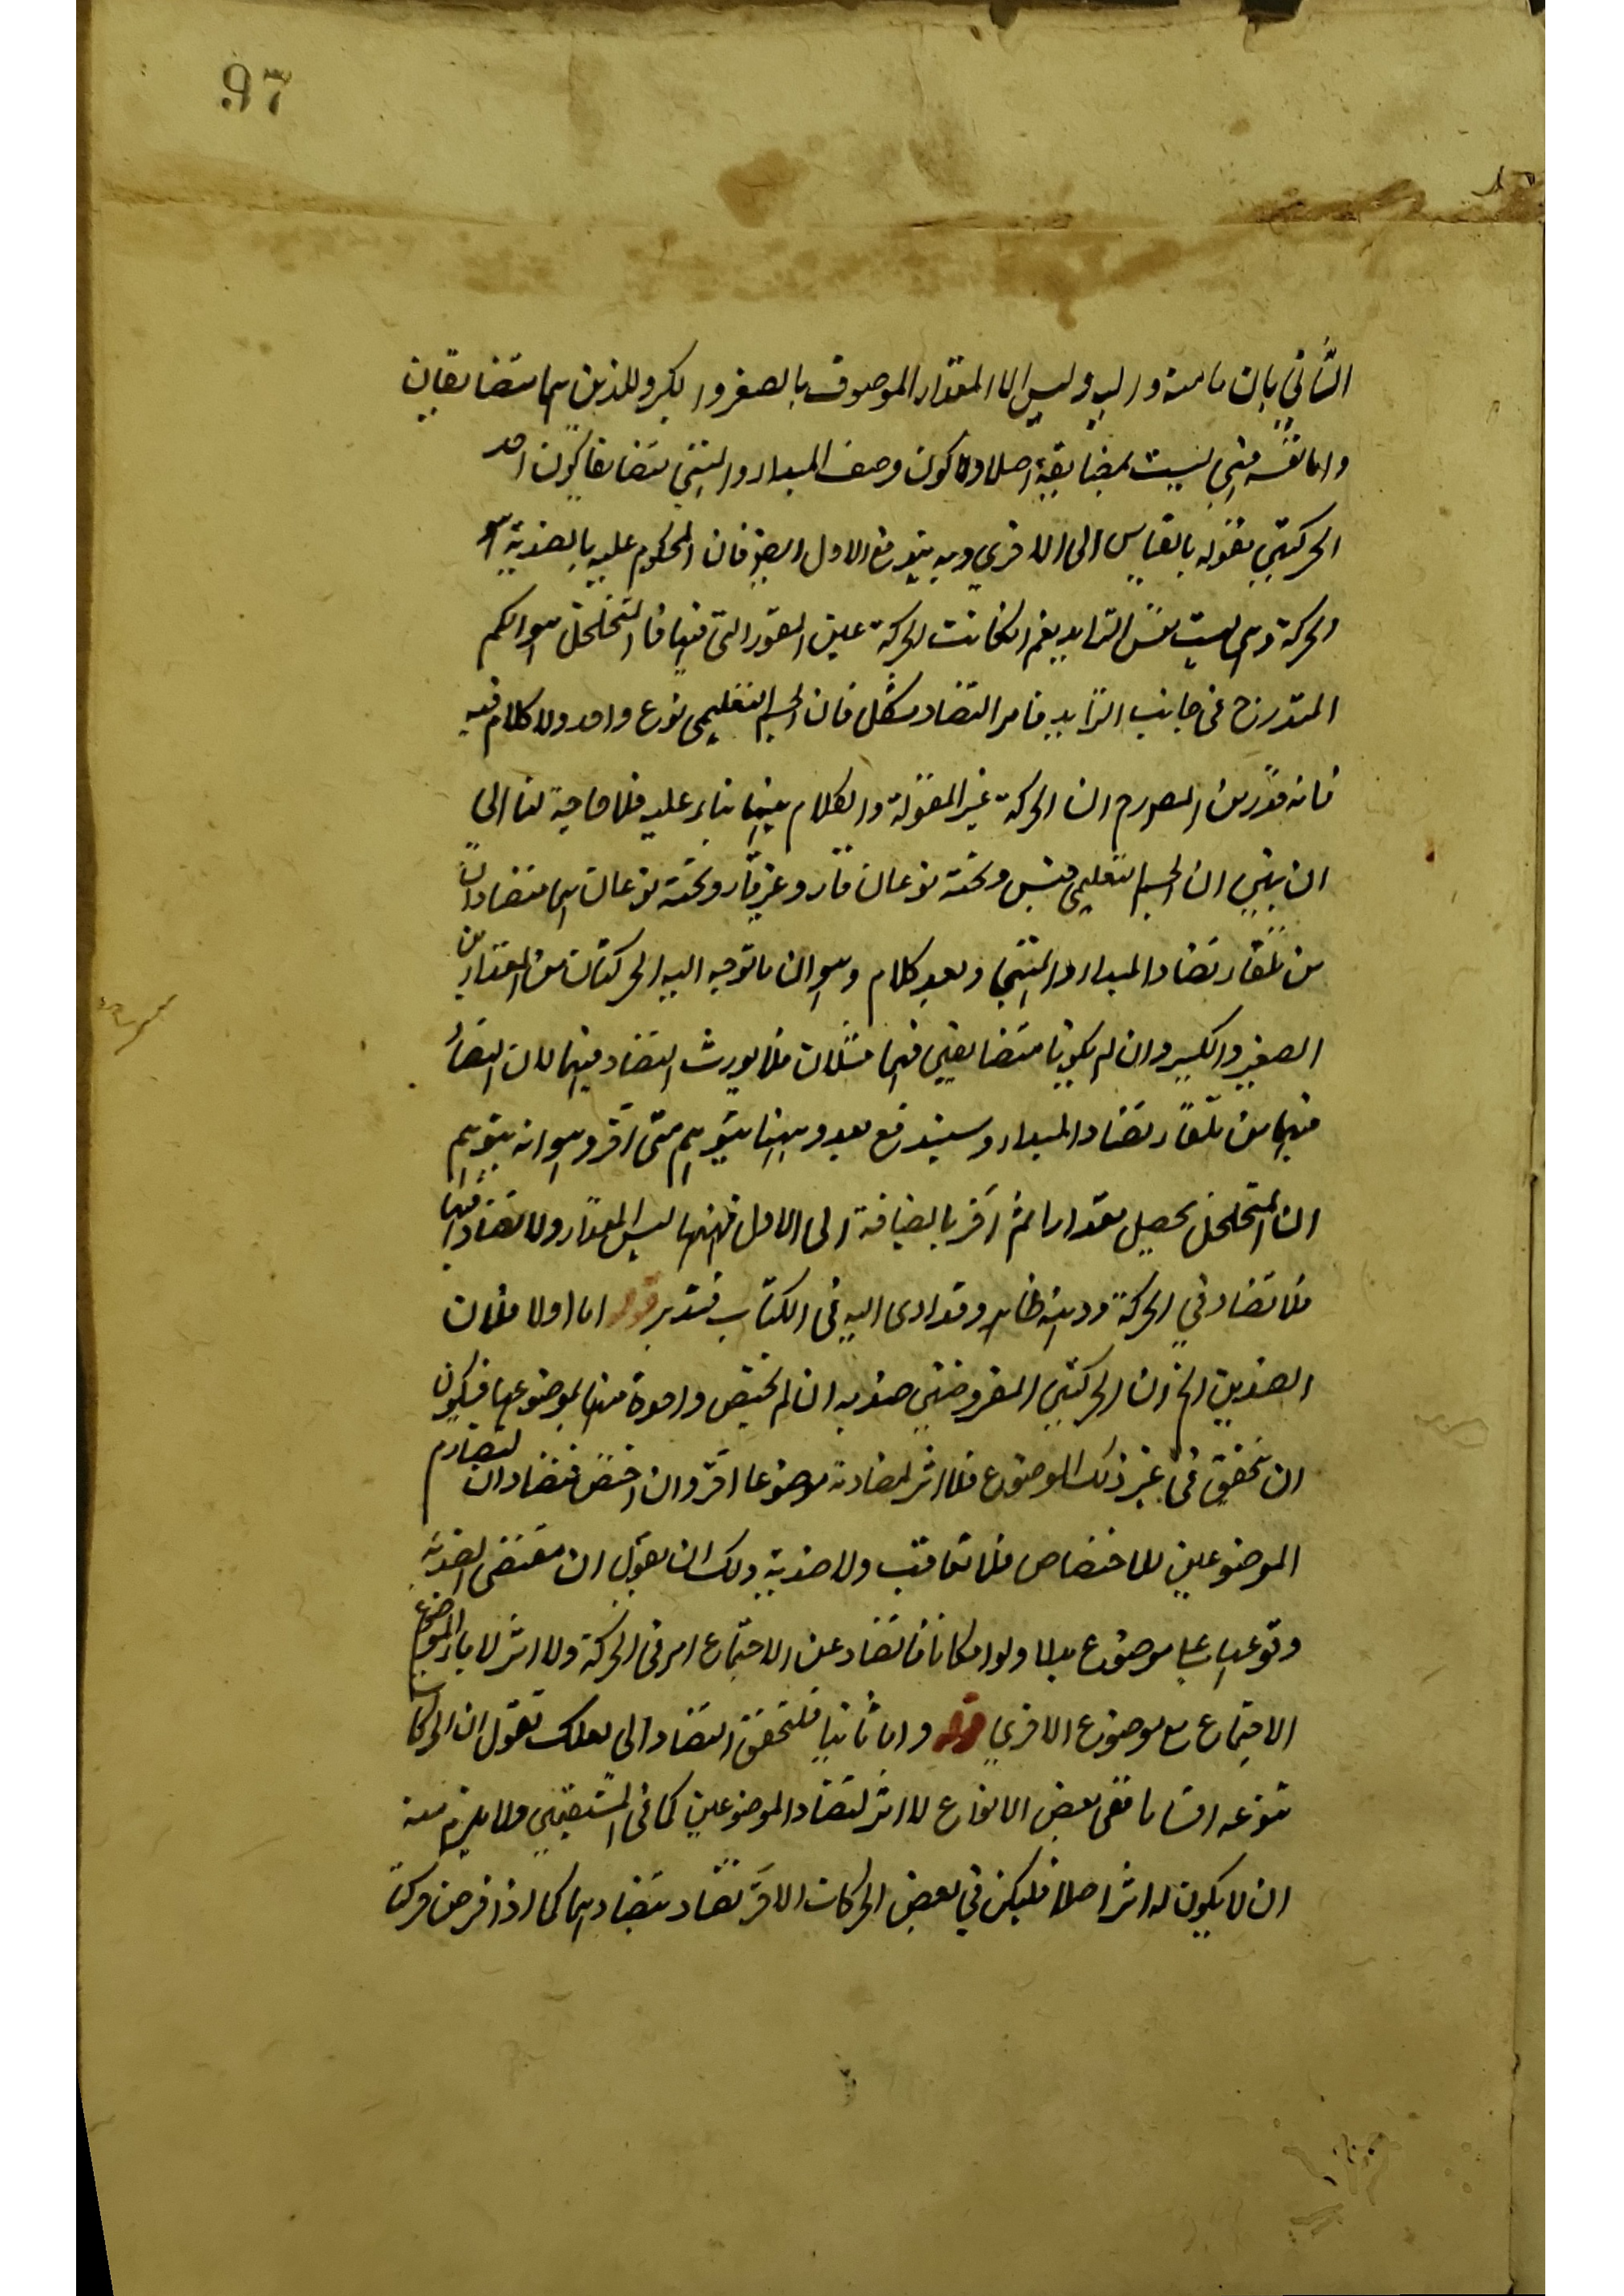 97
الثاني بان ما منه واليه وليس الا المقدار الموصوف بالصغر والكبر واللذين هما متضايفان
واما نفسه فهي ليست بمضايفة اصلا ولا كون وصف المبدا والمنتهي متضايفا كون احد
الحركتين مقولة بالقياس الى الاخرى وبه يندفع الاول ايضا فان المحكوم عليه بالضدية هو
الحركة وهي ليست نفس التزايد نعم لو كانت الحركة عين المقولة التي فيها فالتخلخل هو الكم
المتدرج في جانب التزايد فامر التضاد مشكل فان الجسم التعليمي نوع واحد ولا كلام فيه
فانه قدر من المصرح ان الحركة غير المقولة والكلام ههنا بناء عليه فلا حاجة لنا الى
ان نبين ان الجسم التعليمي جنس وتحته نوعان قار وغير قار وتحته نوعان هما متضادان
من تلقاء تضاد المبدا والمنتهى وبعد كلام وهو ان ما توجه اليه الحركتان من المقدارين
الصغير والكبير وان لم يكونا متضايفين فهما مثلان فلا يورث التضاد فيهما لان التضاد
فيهما من تلقاء تضاد المبدا وسيندفع بعد وههنا يتوهم شئ اخر وهو انه يتوهم
ان المتخلخل يحصل مقدارا ثم اخر بالاضافة الى الاول فمنتهاها ليس الا المقدار ولا تضاد فيها
فلا تضاد في الحركة ودفعه ظاهر وقد ادى اليه في الكتاب فتدبر قوله اما اولا فلان
الضدين الخ ان الحركتين المفروضتين ضدية ان لم يختص واحدة منها بموضوعها فيكون
ان تحقق في غير ذلك الموضوع فلا اثر لمضادته موضوعا اخر وان اختص فتضادان لتصادم
الموضوعين للاختصاص فلا تعاقب ولا ضدية ولك ان تقول ان مقتضى الضدية
وقوعها على موضوع بدلا ولو امكانا فالتضاد عن الاجتماع امر في الحركة ولا اثر لاباء الموضوع
الاجتماع مع موضوع الاخرى قوله واما ثانيا فلتحقق التضاد الى لعلك تقول ان الحركات
متنوعة اقساما ففي بعض الانواع لا اثر لتضاد الموضوعين كما في المستقيمتين ولا يلزم منه
ان لا يكون له اثر اصلا فليكن في بعض الحركات الاخر تضاد بتضادهما كما اذا فرض حركتا